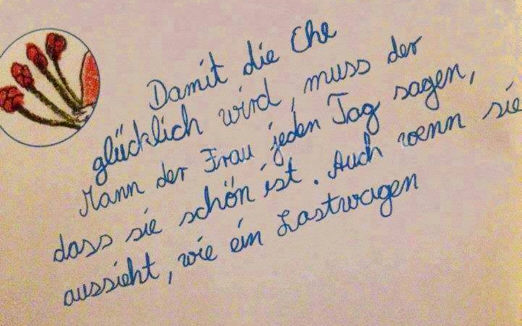 Damit die Ehe
glücklich wird, muss der
Mann der Frau jeden Tag sagen,
dass sie schön ist. Auch wenn sie
aussieht, wie ein Lastwagen